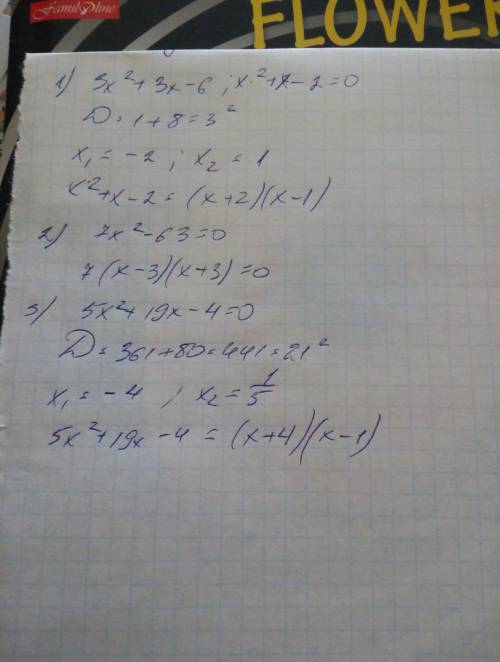 FamilOline
FLOWER
1) 3x²+3x-6 ; x²+x-2=0
D=1+8=3²
x₁=-2 ; x₂=1
x²+x-2=(x+2)(x-1)
2) 7x²-63=0
7(x-3)(x+3)=0
3) 5x²+19x-4=0
D=361+80=441=21²
x₁=-4 ; x₂=1/5
5x²+19x-4=(x+4)(x-1)